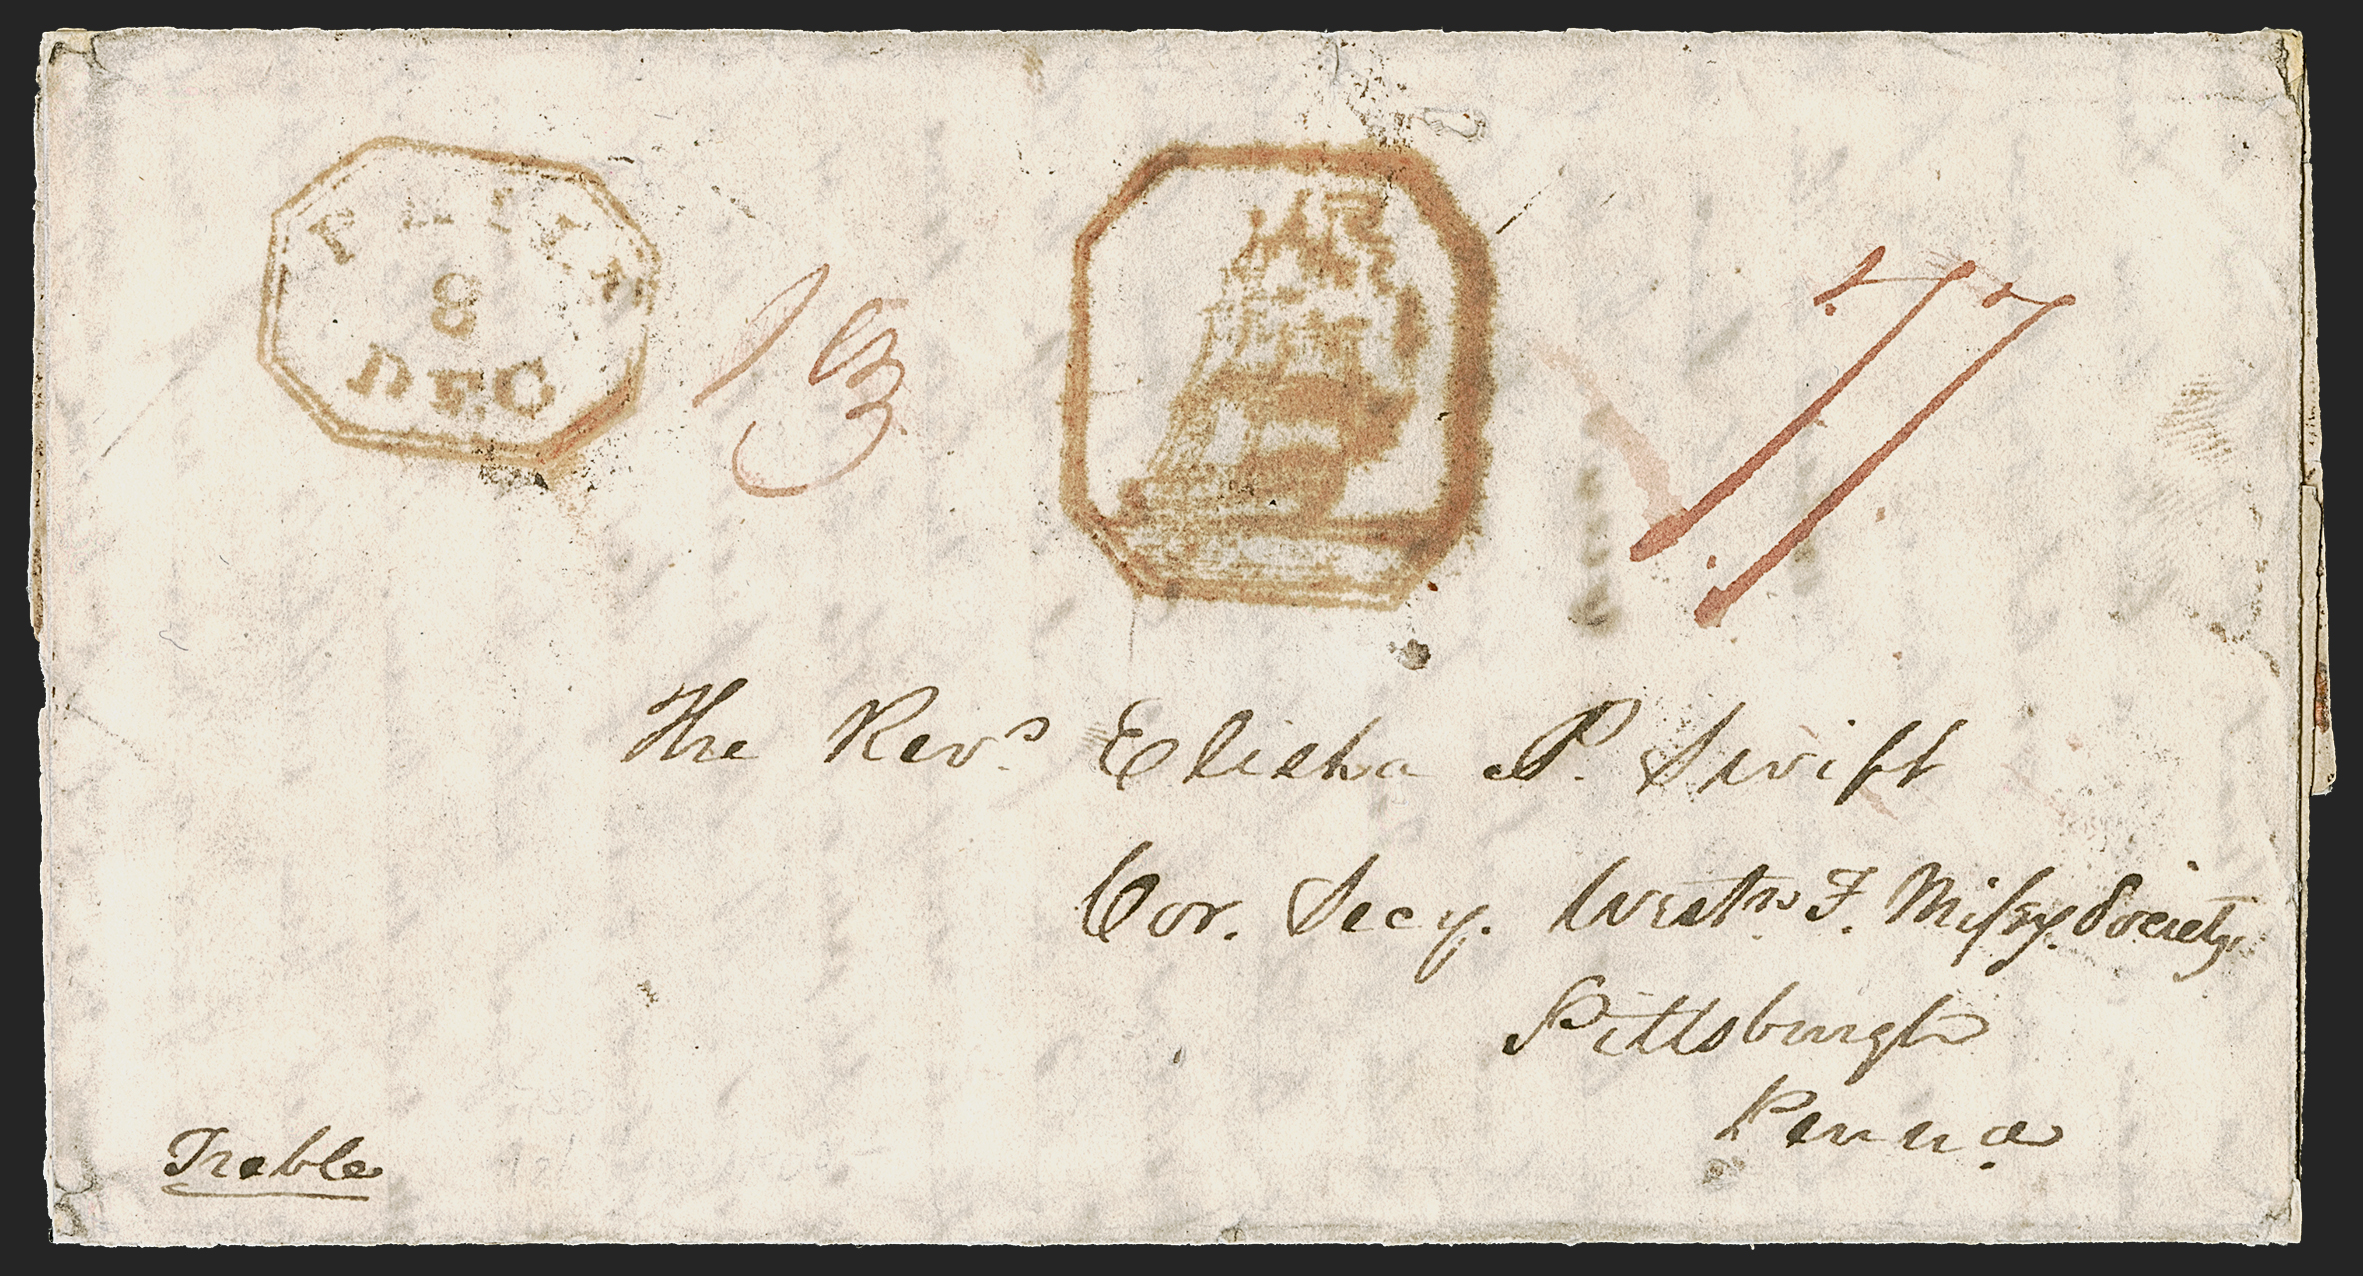 PHILA
8
DEC
77
The Revd. Elisha P. Swift
Cor. Secy. Westn. F. Missy. Society.
Pittsburgh
Penna
Treble